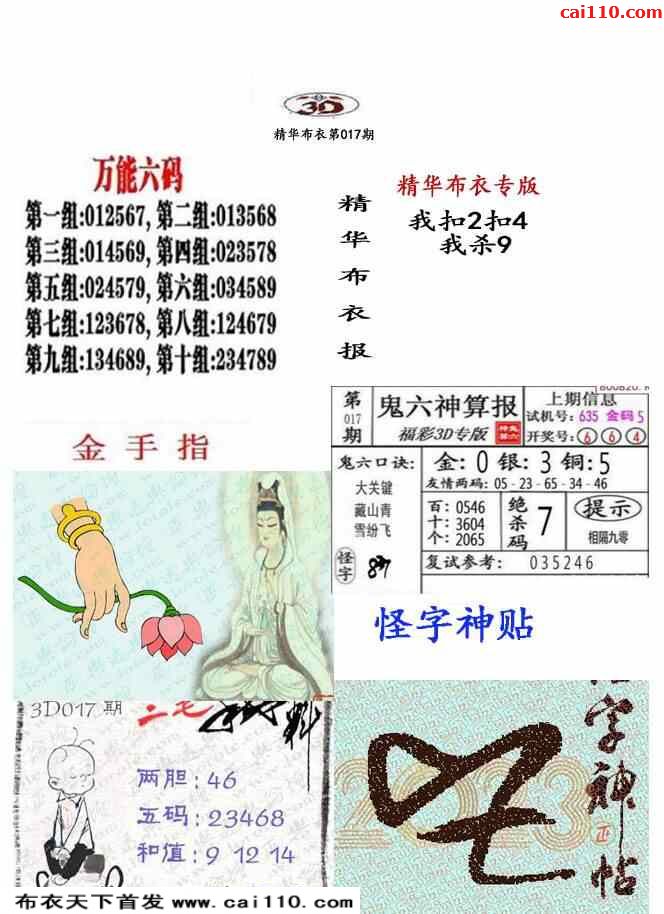 cai110.com
3D
精华布衣第017期
万能六码
第一组:012567, 第二组:013568
第三组:014569, 第四组:023578
第五组:024579, 第六组:034589
第七组:123678, 第八组:124679
第九组:134689, 第十组:234789
精华布衣报
精华布衣专版
我扣2扣4
我杀9
金手指
第017期
鬼六神算报
福彩3D专版
上期信息
试机号: 635 金码 5
开奖号: 6 6 4
鬼六口诀:
大关键
藏山青
雪纷飞
怪字
金: 0 银: 3 铜: 5
友情两码: 05-23-65-34-46
百: 0546
十: 3604
个: 2065
绝杀码 7
提示
相隔九零
复试参考: 035246
怪字神贴
3D017期
二毛
两胆: 46
五码: 23468
和值: 9 12 14
2023
字神帖
布衣天下首发 www.cai110.com